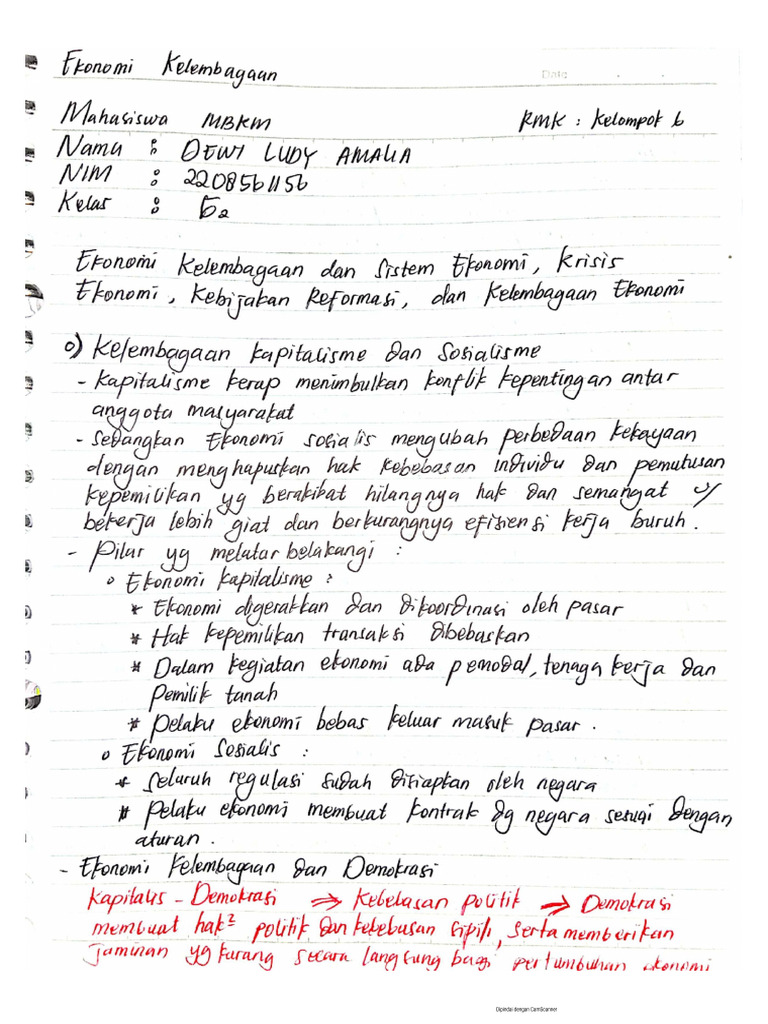 Ekonomi Kelembagaan
Date
Mahasiswa MBKM RMK : Kelompok 6
Nama : DEWI LUDY AMALIA
NIM : 2208561156
Kelas : E2
Ekonomi Kelembagaan dan Sistem Ekonomi, Krisis
Ekonomi, Kebijakan Reformasi, dan Kelembagaan Ekonomi
o) Kelembagaan kapitalisme dan Sosialisme
- Kapitalisme kerap menimbulkan konflik kepentingan antar
anggota masyarakat
- Sedangkan Ekonomi sosialis mengubah perbedaan kekayaan
dengan menghapuskan hak kebebasan individu dan pemutusan
kepemilikan yg berakibat hilangnya hak dan semangat u/
bekerja lebih giat dan berkurangnya efisiensi kerja buruh.
- Pilar yg melatar belakangi :
o Ekonomi kapitalisme :
* Ekonomi digerakkan dan dikoordinasi oleh pasar
* Hak kepemilikan transaksi dibebaskan
* Dalam kegiatan ekonomi ada pemodal, tenaga kerja dan
pemilik tanah
* Pelaku ekonomi bebas keluar masuk pasar.
o Ekonomi Sosialis :
* Seluruh regulasi sudah disiapkan oleh negara
* Pelaku ekonomi membuat kontrak dg negara sesuai dengan
aturan.
- Ekonomi Kelembagaan dan Demokrasi
Kapitalis - Demokrasi => Kebebasan politik => Demokrasi
membuat hak² politik dan kebebasan sipil, serta memberikan
jaminan yg kurang secara langsung bagi pertumbuhan ekonomi
Dipindai dengan CamScanner